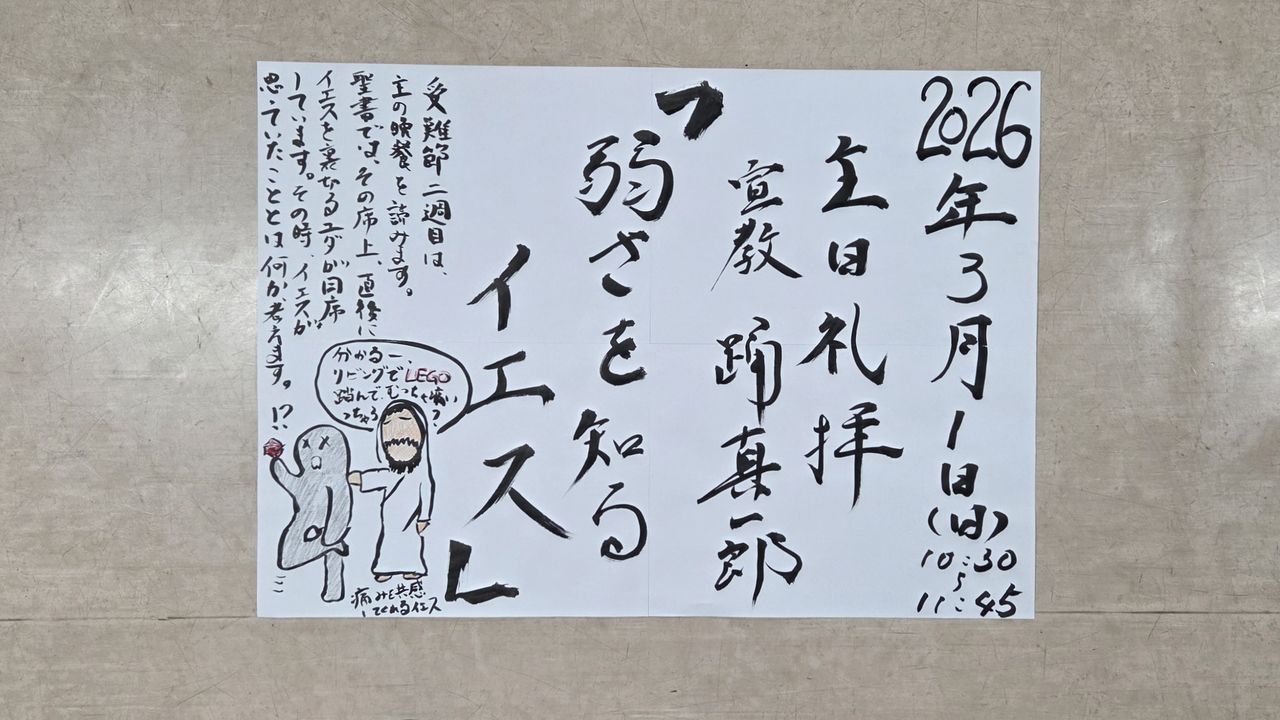 2026年3月1日(日)
10:30
〜
11:45
主日礼拝
宣教 踊真一郎
「弱さを知る
イエス」
受難節二週目は、
主の晩餐を読みます。
聖書では、その席上、直後に
イエスを裏切るユダが同席
しています。その時、イエスが
思ていたこととは何か、考えます。
分かるー、
リビングでLEGO
踏んでむっちゃ痛い
っちゃろ?
!?
痛みを共感
してくれるイエス